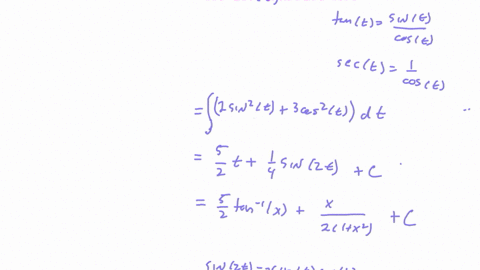 tan(t) = sin(t)/cos(t)
sec(t) = 1/cos(t)
= ∫(2 sin²(t) + 3 cos²(t)) dt
= 5/2 t + 1/4 sin(2t) + C
= 5/2 tan⁻¹(x) + x/2(1+x²) + C
sin(2t)